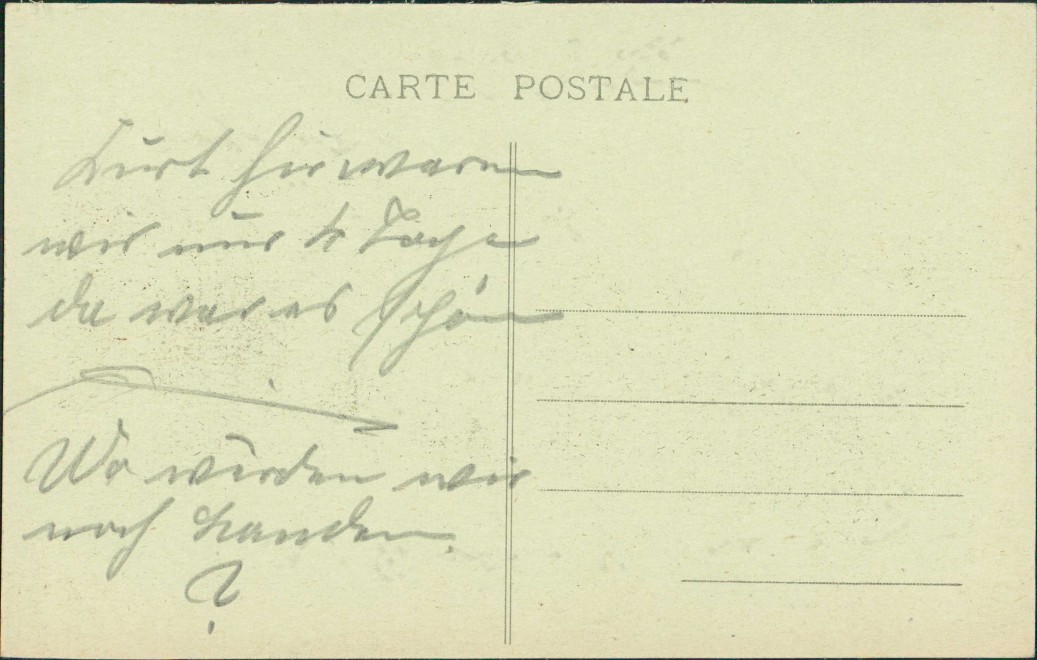 CARTE POSTALE
Kurt hir waren
wir nur 4 Tage
da war es schön
Wo würden wir
noch Landen
?